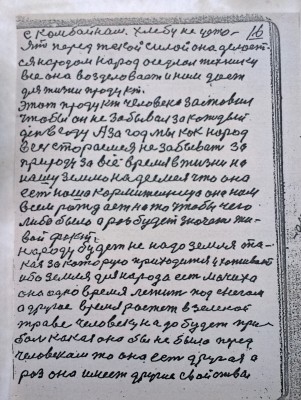 16
с комбайнам. хлебу не усто-
ят перед такой силой она делает-
ся народом народ оседлал технику
все она возделовает и нам дает
для жизни продукт.
Этот продукт человека заставил
чтобы он не забывал за каждый
ден в году А за год мы как народ
все стораемся не забыват за
природу за всё время в жизни на
нашу землю надеемся что она
ест наша кормительница она нам
всем рождает на то чтобы чего
либо было а раз будет значет жи-
вой факт.
Народу будет не надо земля та-
кая за которую приходится ухаживат
ибо земля для народа ест мачиха
она одно время лежит под снегом
а другое время растет в зеленой
траве человеку надо будет при-
бой какая она бы не было перед
человекам то она ест другая а
раз она имеет другие свойства